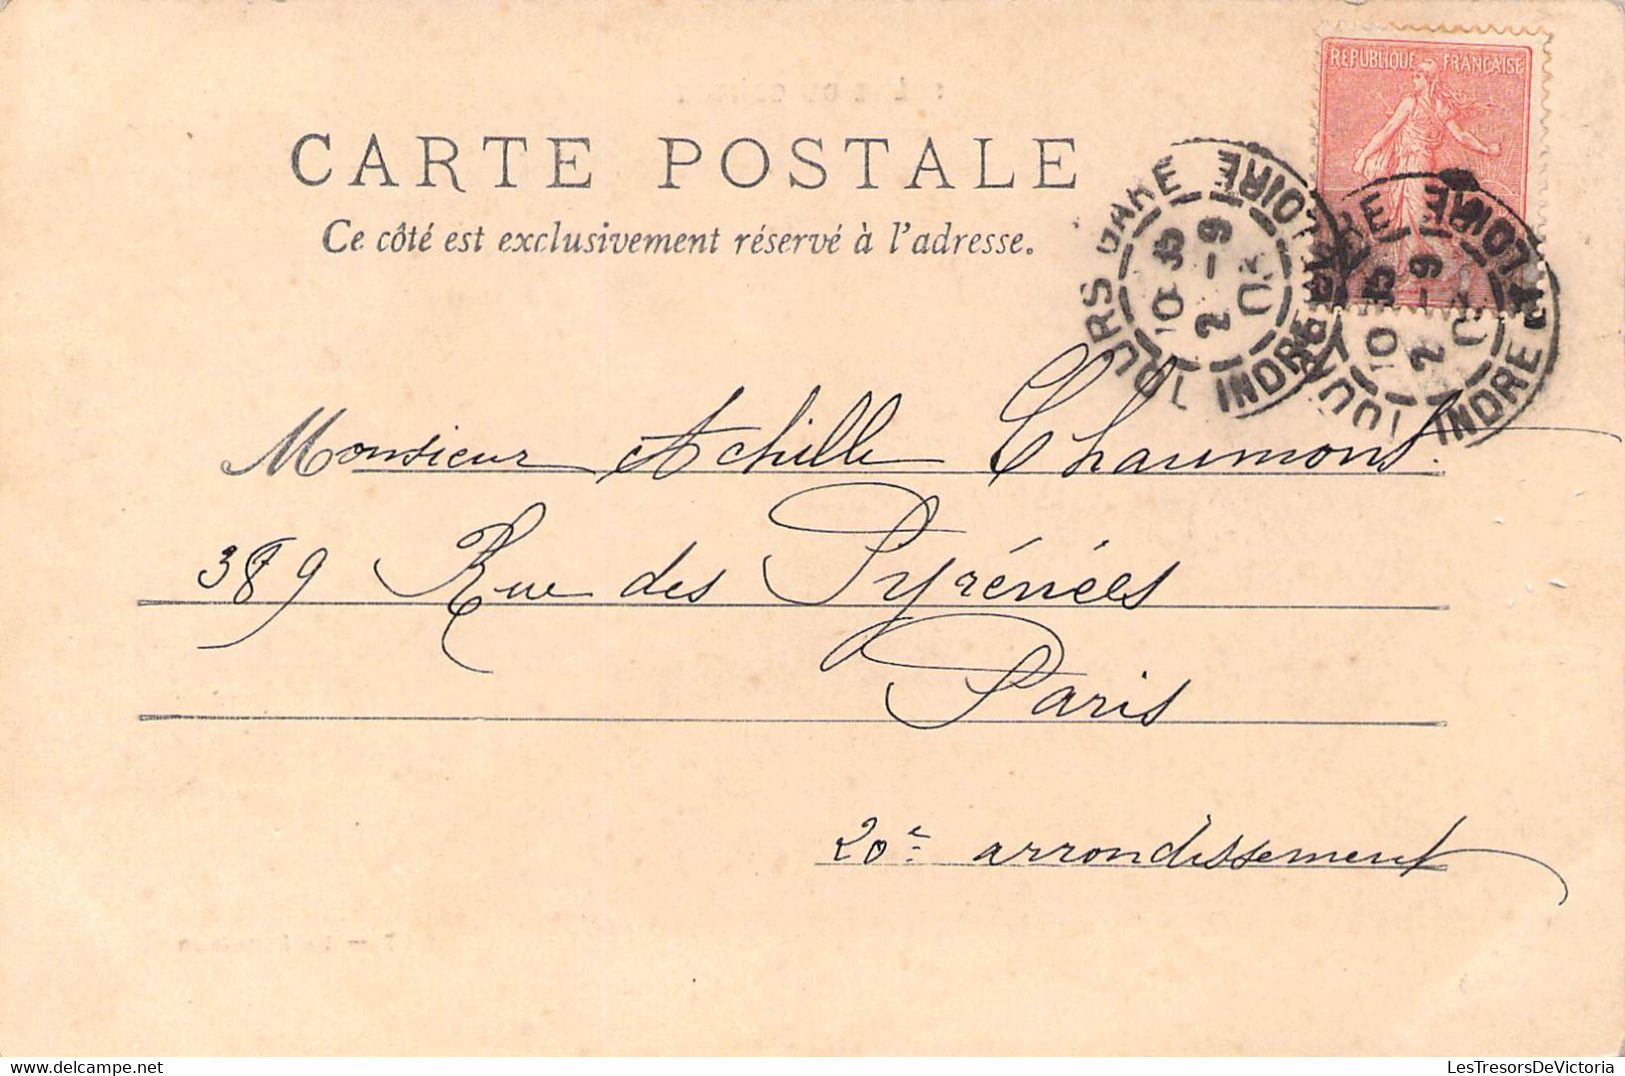 RÉPUBLIQUE FRANÇAISE
CARTE POSTALE
Ce côté est exclusivement réservé à l'adresse.
TOURS GARE
INDRE ET LOIRE
10 35
2 - 9
03
TOURS GARE
INDRE ET LOIRE
10 35
2 - 9
Monsieur Achille Chaumont.
389 Rue des Pyrénées
Paris
20e arrondissement
LesTresorsDeVictoria